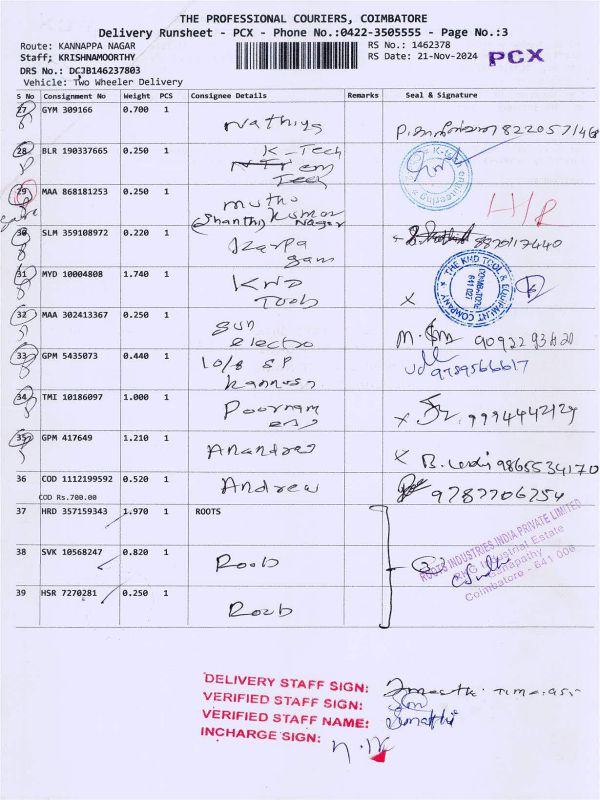 THE PROFESSIONAL COURIERS, COIMBATORE
Delivery Runsheet - PCX - Phone No.:0422-3505555 - Page No.:3
Route: KANNAPPA NAGAR
RS No.: 1462378
PCX
Staff; KRISHNAMOORTHY
RS Date: 21-Nov-2024
DRS No.: DCJB146237803
Vehicle: Two Wheeler Delivery
S No Consignment No Weight PCS Consignee Details Remarks Seal & Signature
27 GYM 309166 0.700 1 Nathiya 8220571468
28 BLR 190337665 0.250 1 K-Tech
Tech
29 MAA 868181253 0.250 1 muthu H/R
Shanthi Kumar
Nagar
30 SLM 359108972 0.220 1 8870117440
31 MYD 10004808 1.740 1 KND
Tools
THE KND TOOL & EQUIPMENT COMPANY
COIMBATORE
641 027
32 MAA 302413367 0.250 1 Sun
electro
33 GPM 5435073 0.440 1 9789566617
34 TMI 10186097 1.000 1 Poornam 9994442129
35 GPM 417649 1.210 1 9865534170
36 COD 1112199592 0.520 1 Andrew 9787706754
COD Rs.700.00
37 HRD 357159343 1.970 1 ROOTS
ROOTS INDUSTRIES INDIA PRIVATE LIMITED
Industrial Estate
Ganapathy
Coimbatore - 641 006
38 SVK 10568247 0.820 1 Roots
39 HSR 7270281 0.250 1 Roots
DELIVERY STAFF SIGN:
VERIFIED STAFF SIGN:
VERIFIED STAFF NAME: Sumathi
INCHARGE SIGN: